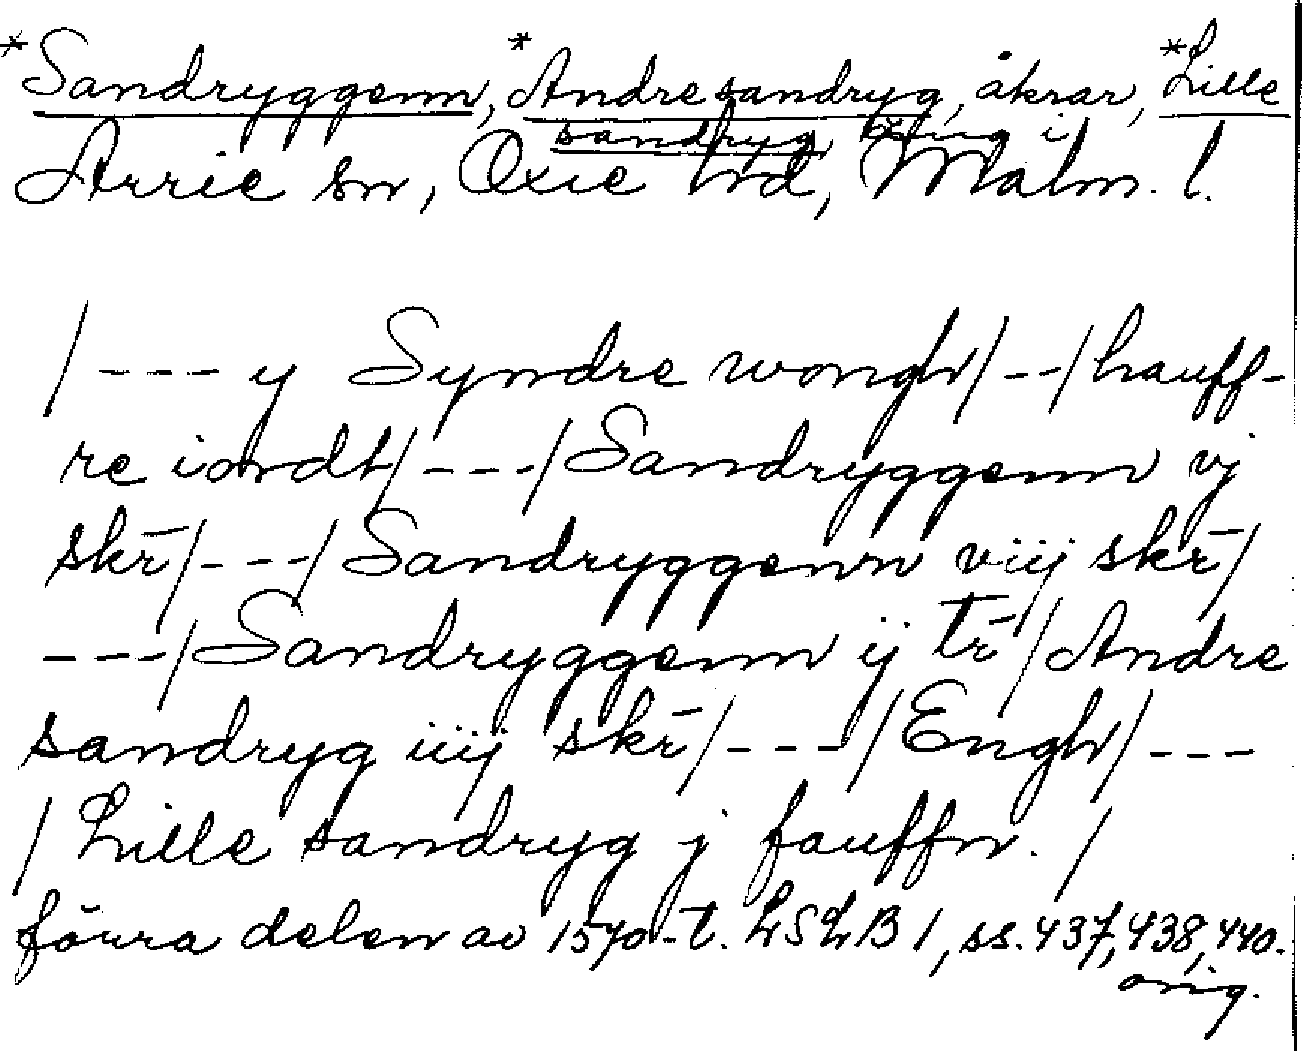 *Sandryggenn, *Andre sandryg, åkrar, *Lille
sandryg, äng i
Arrie sn, Oxie hd, Malm. l.
/--- y Syndre wongh/--/hauff-
re iordt/---/Sandryggenn vj
skr̄/---/Sandryggenn viij skr̄/
---/Sandryggenn ij tr̄/Andre
sandryg iiij skr̄/---/Engh/---
/Lille sandryg j fauffn./
förra delen av 1570-t. LSLB 1, ss. 437, 438, 440.
orig.